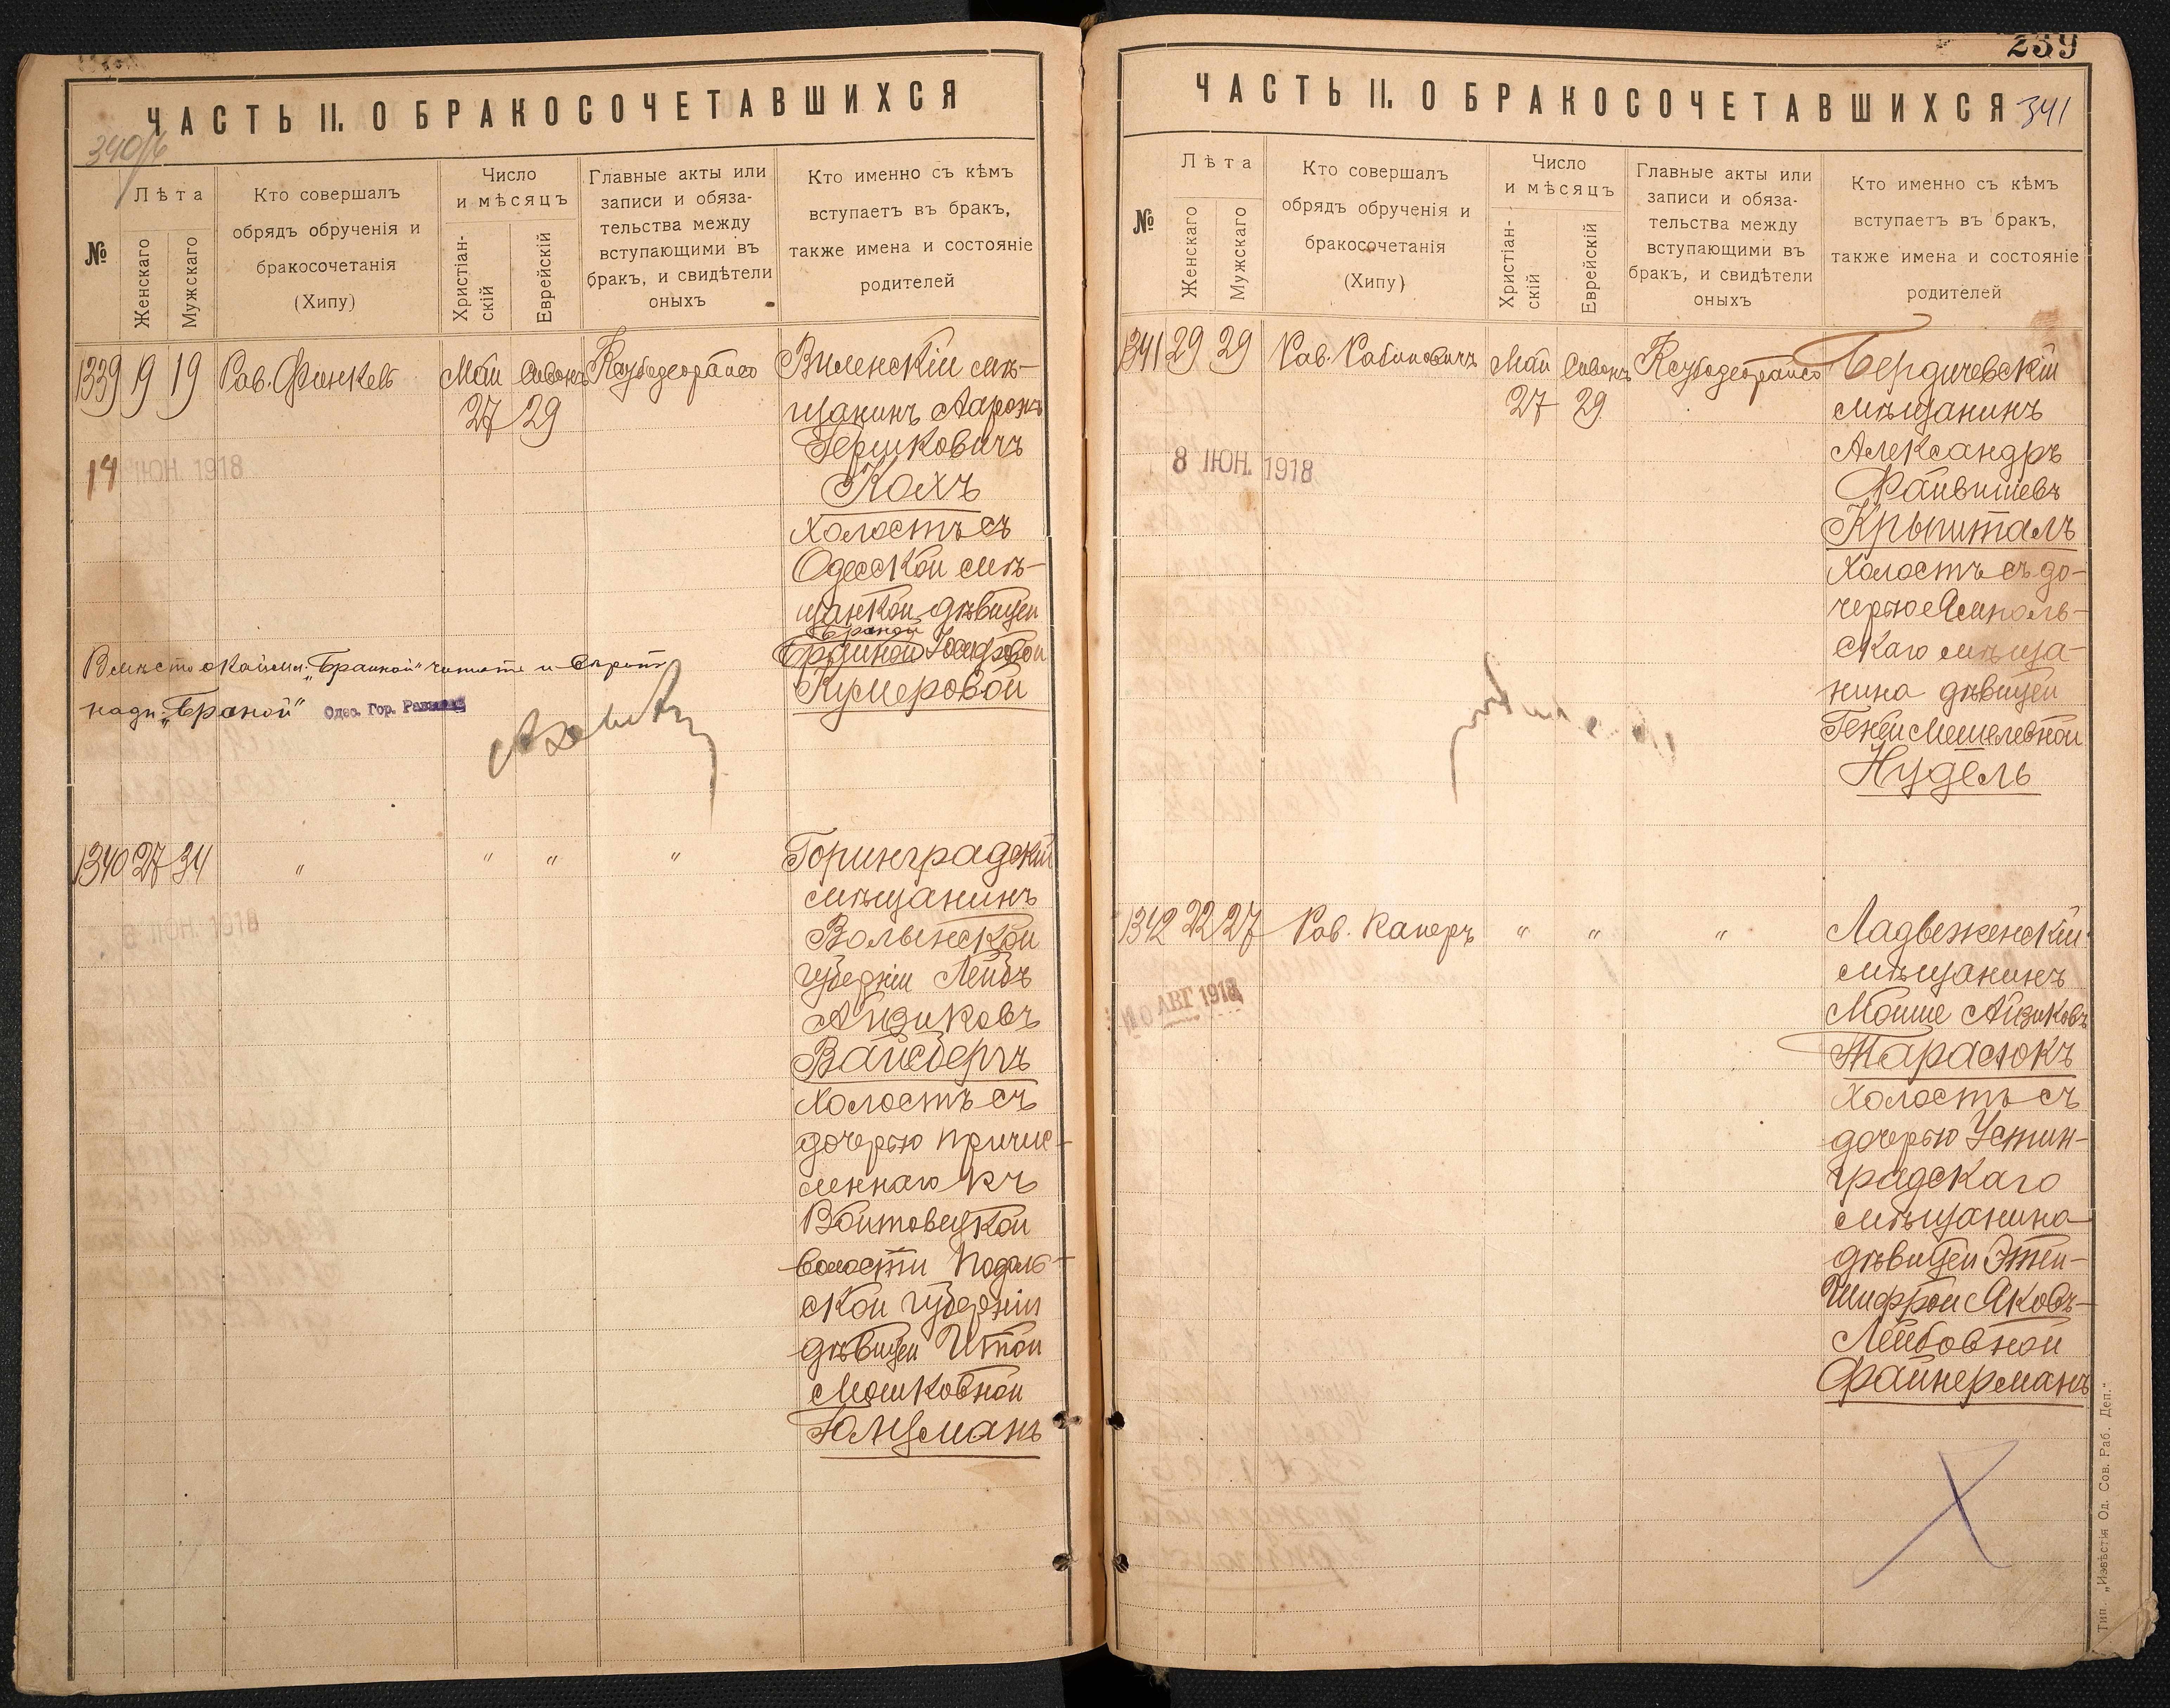 ЧАСТЬ II. О БРАКОСОЧЕТАВШИХСЯ
340/б
№
Лѣта
Женскаго
Мужскаго
Кто совершалъ
обрядъ обрученія и
бракосочетанія
(Хипу)
Число
и мѣсяцъ
Христіан-
скій
Еврейскій
Главные акты или
записи и обяза-
тельства между
вступающими въ
бракъ, и свидѣтели
оныхъ
Кто именно съ кѣмъ
вступаетъ въ бракъ,
также имена и состояніе
родителей
1339 19 19 Рав. Финкель Май Сивонъ
27 29
Виленскій мѣ-
щанинъ Ааронъ
Гершковичъ
Кохъ
холостъ съ
Одесской мѣ-
щанкой дѣвицей
Браной
Іосифовой
Кумеровой
14 ІЮН. 1918
Вмѣсто „Браиной" читать и
надп. „Браной" Одес. Гор. Раввинъ
1340 27 34 " " " "
Горинградскій
мѣщанинъ
Волынской
губерніи Лейбъ
Айзиковъ
Вайсбергъ
холостъ съ
дочерью причис-
леннаго къ
Войтовецкой
волости Подоль-
ской губерніи
дѣвицей Итой
Мошковной
Юнцманъ
8 ІЮН. 1918
239
ЧАСТЬ II. О БРАКОСОЧЕТАВШИХСЯ 341
№
Лѣта
Женскаго
Мужскаго
Кто совершалъ
обрядъ обрученія и
бракосочетанія
(Хипу)
Число
и мѣсяцъ
Христіан-
скій
Еврейскій
Главные акты или
записи и обяза-
тельства между
вступающими въ
бракъ, и свидѣтели
оныхъ
Кто именно съ кѣмъ
вступаетъ въ бракъ,
также имена и состояніе
родителей
1341 29 29 Рав. Рабиновичъ Май Сивонъ
27 29
Бердичевскій
мѣщанинъ
Александръ
Файвишевъ
Крыпталъ
холостъ съ до-
черью Ямполь-
скаго мѣща-
нина дѣвицей
Геней Мошелевной
Нудель
8 ІЮН. 1918
1342 22 27 Рав. Канеръ " " "
Ладвеженскій
мѣщанинъ
Мойше Айзиковъ
Тарасюкъ
холостъ съ
дочерью Устин-
градскаго
мѣщанина
дѣвицей Этей-
Шифрой Яковъ-
Лейбовной
Файнерманъ
10 АВГ 1918
Тип. „Извѣстія Од. Сов. Раб. Деп."